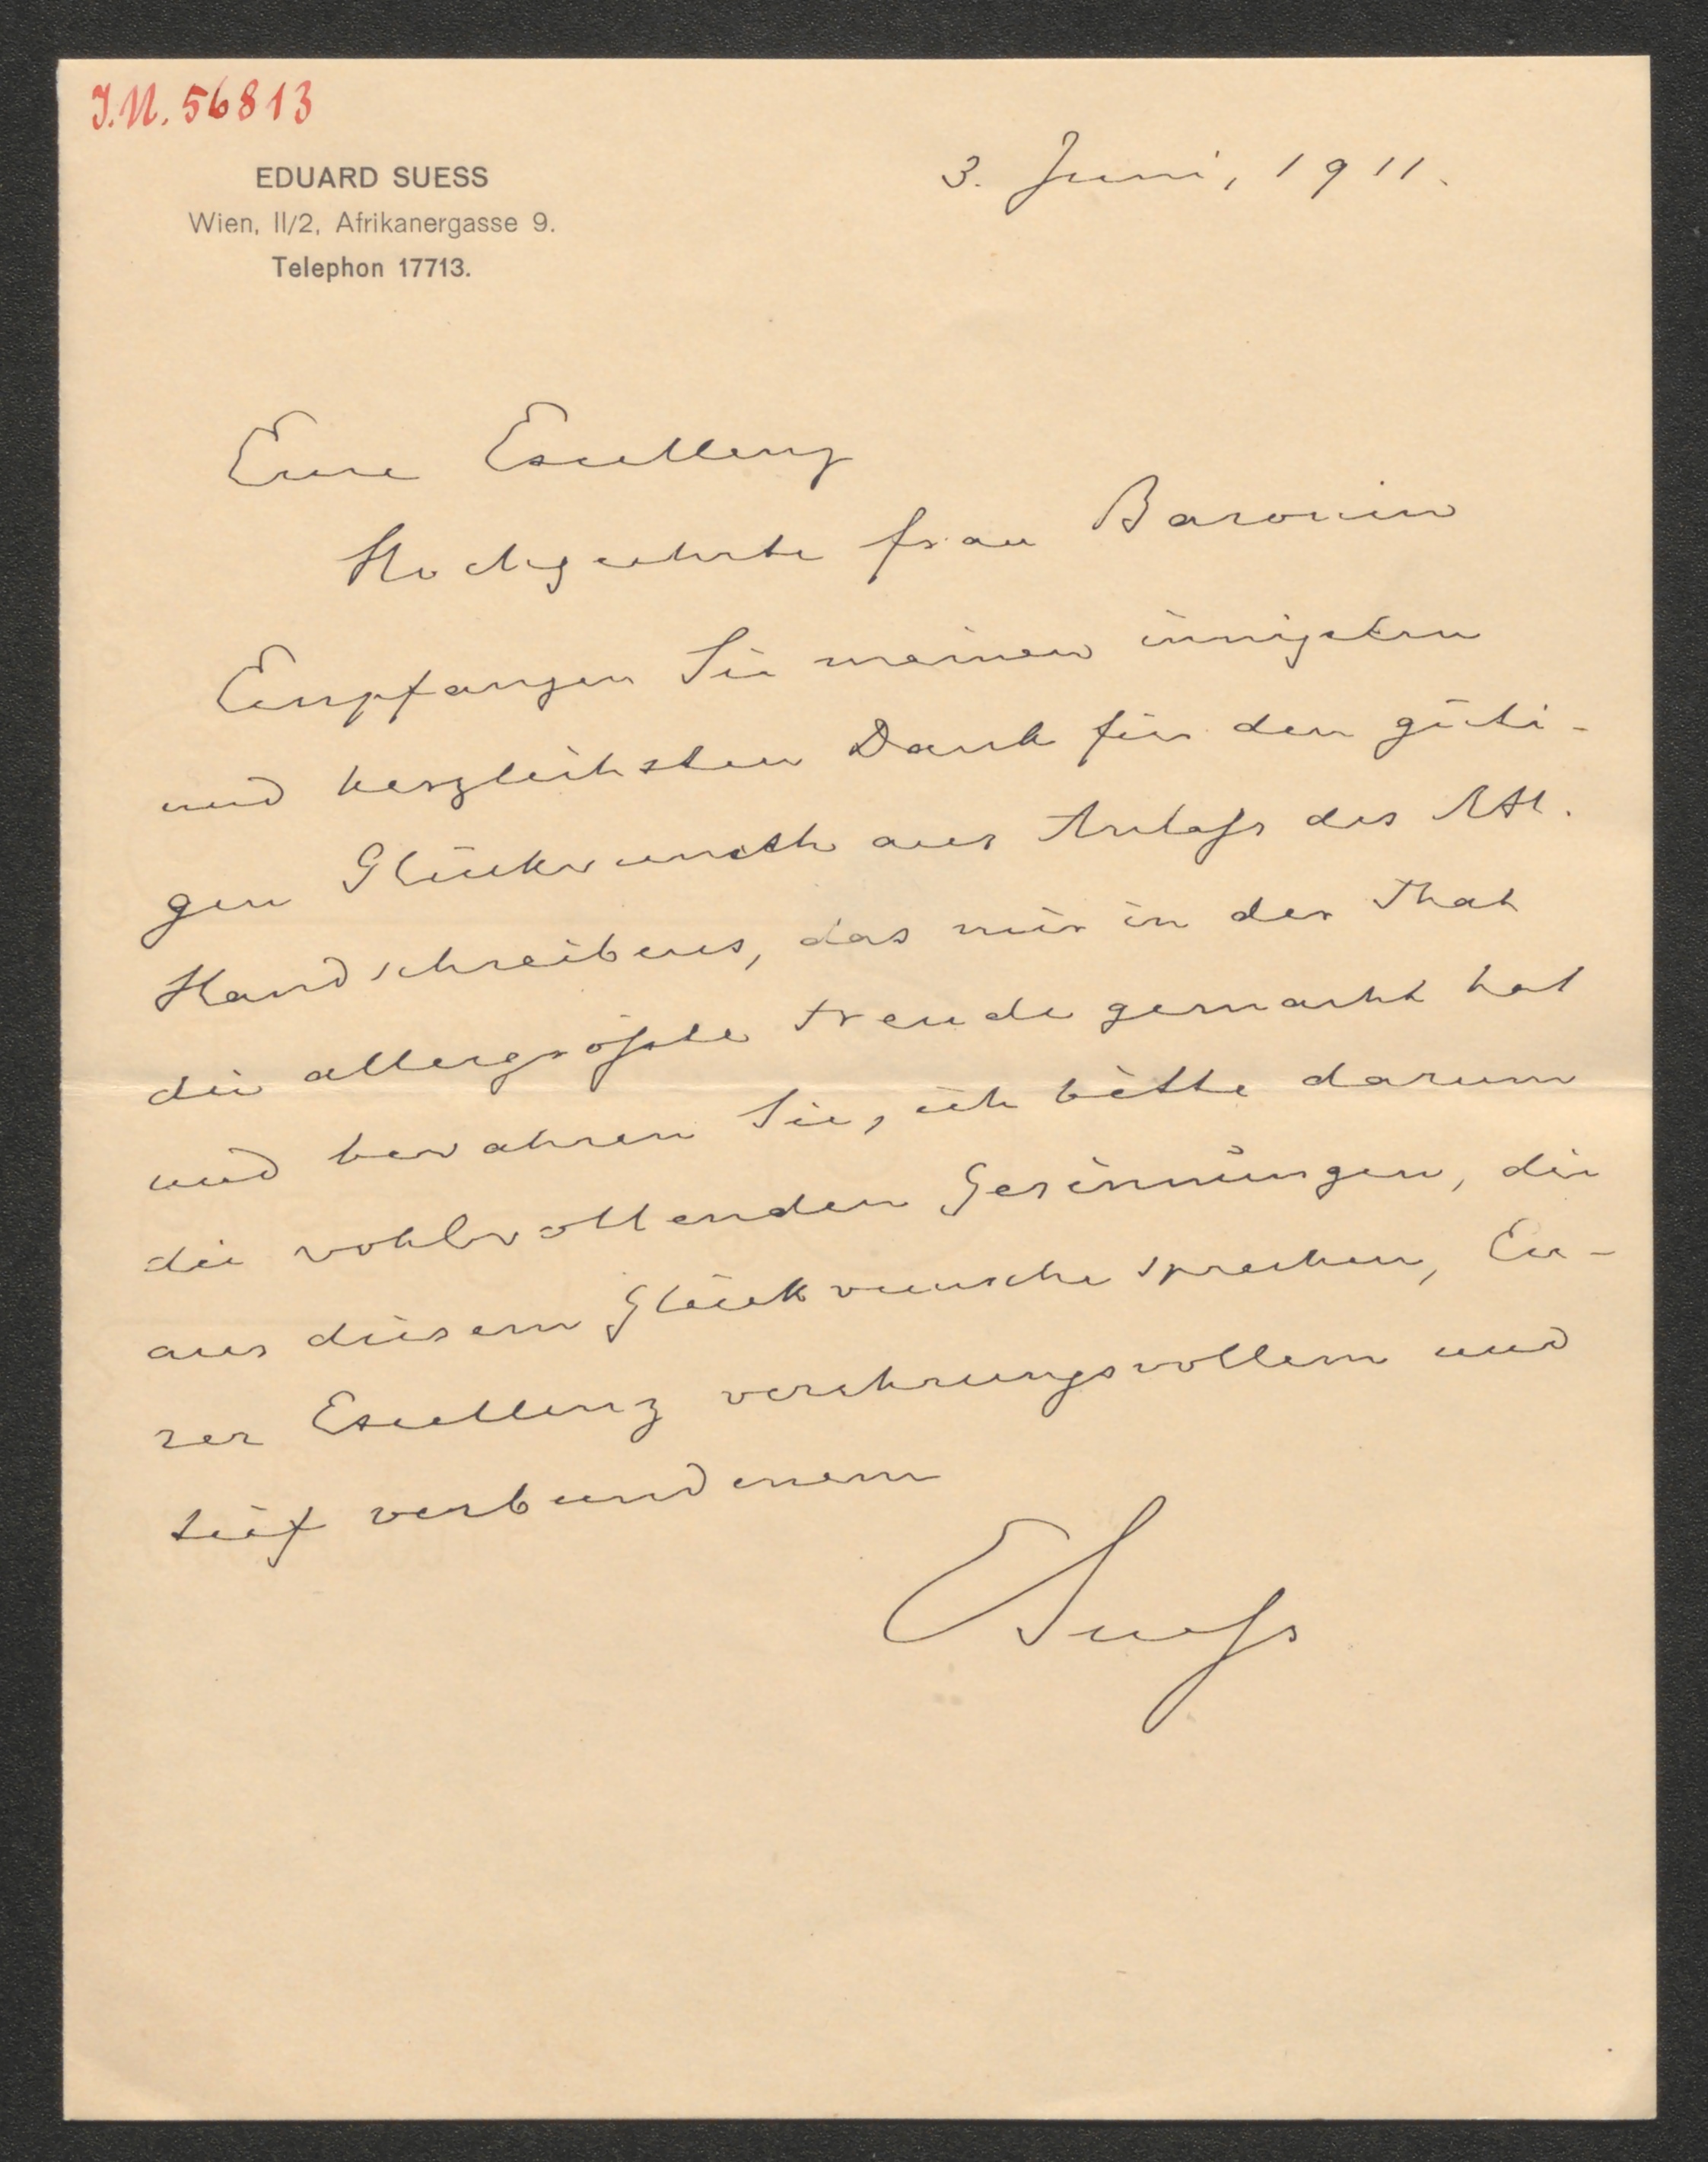 I.N. 56813
EDUARD SUESS
Wien, II/2, Afrikanergasse 9.
Telephon 17713.
3. Juni, 1911.
Eure Excellenz
Hochgeehrte Frau Baronin
Empfangen Sie meinen innigsten
und herzlichsten Dank für den güti-
gen Glückwunsch aus Anlaß des Ah.
Handschreibens, das mir in der That
die allergrößte Freude gemacht hat
und bewahren Sie, ich bitte darum
die wohlwollenden Gesinnungen, die
aus diesem Glückwunsche sprechen, Eu-
rer Excellenz verehrungsvollem und
tief verbundenem
ESueß